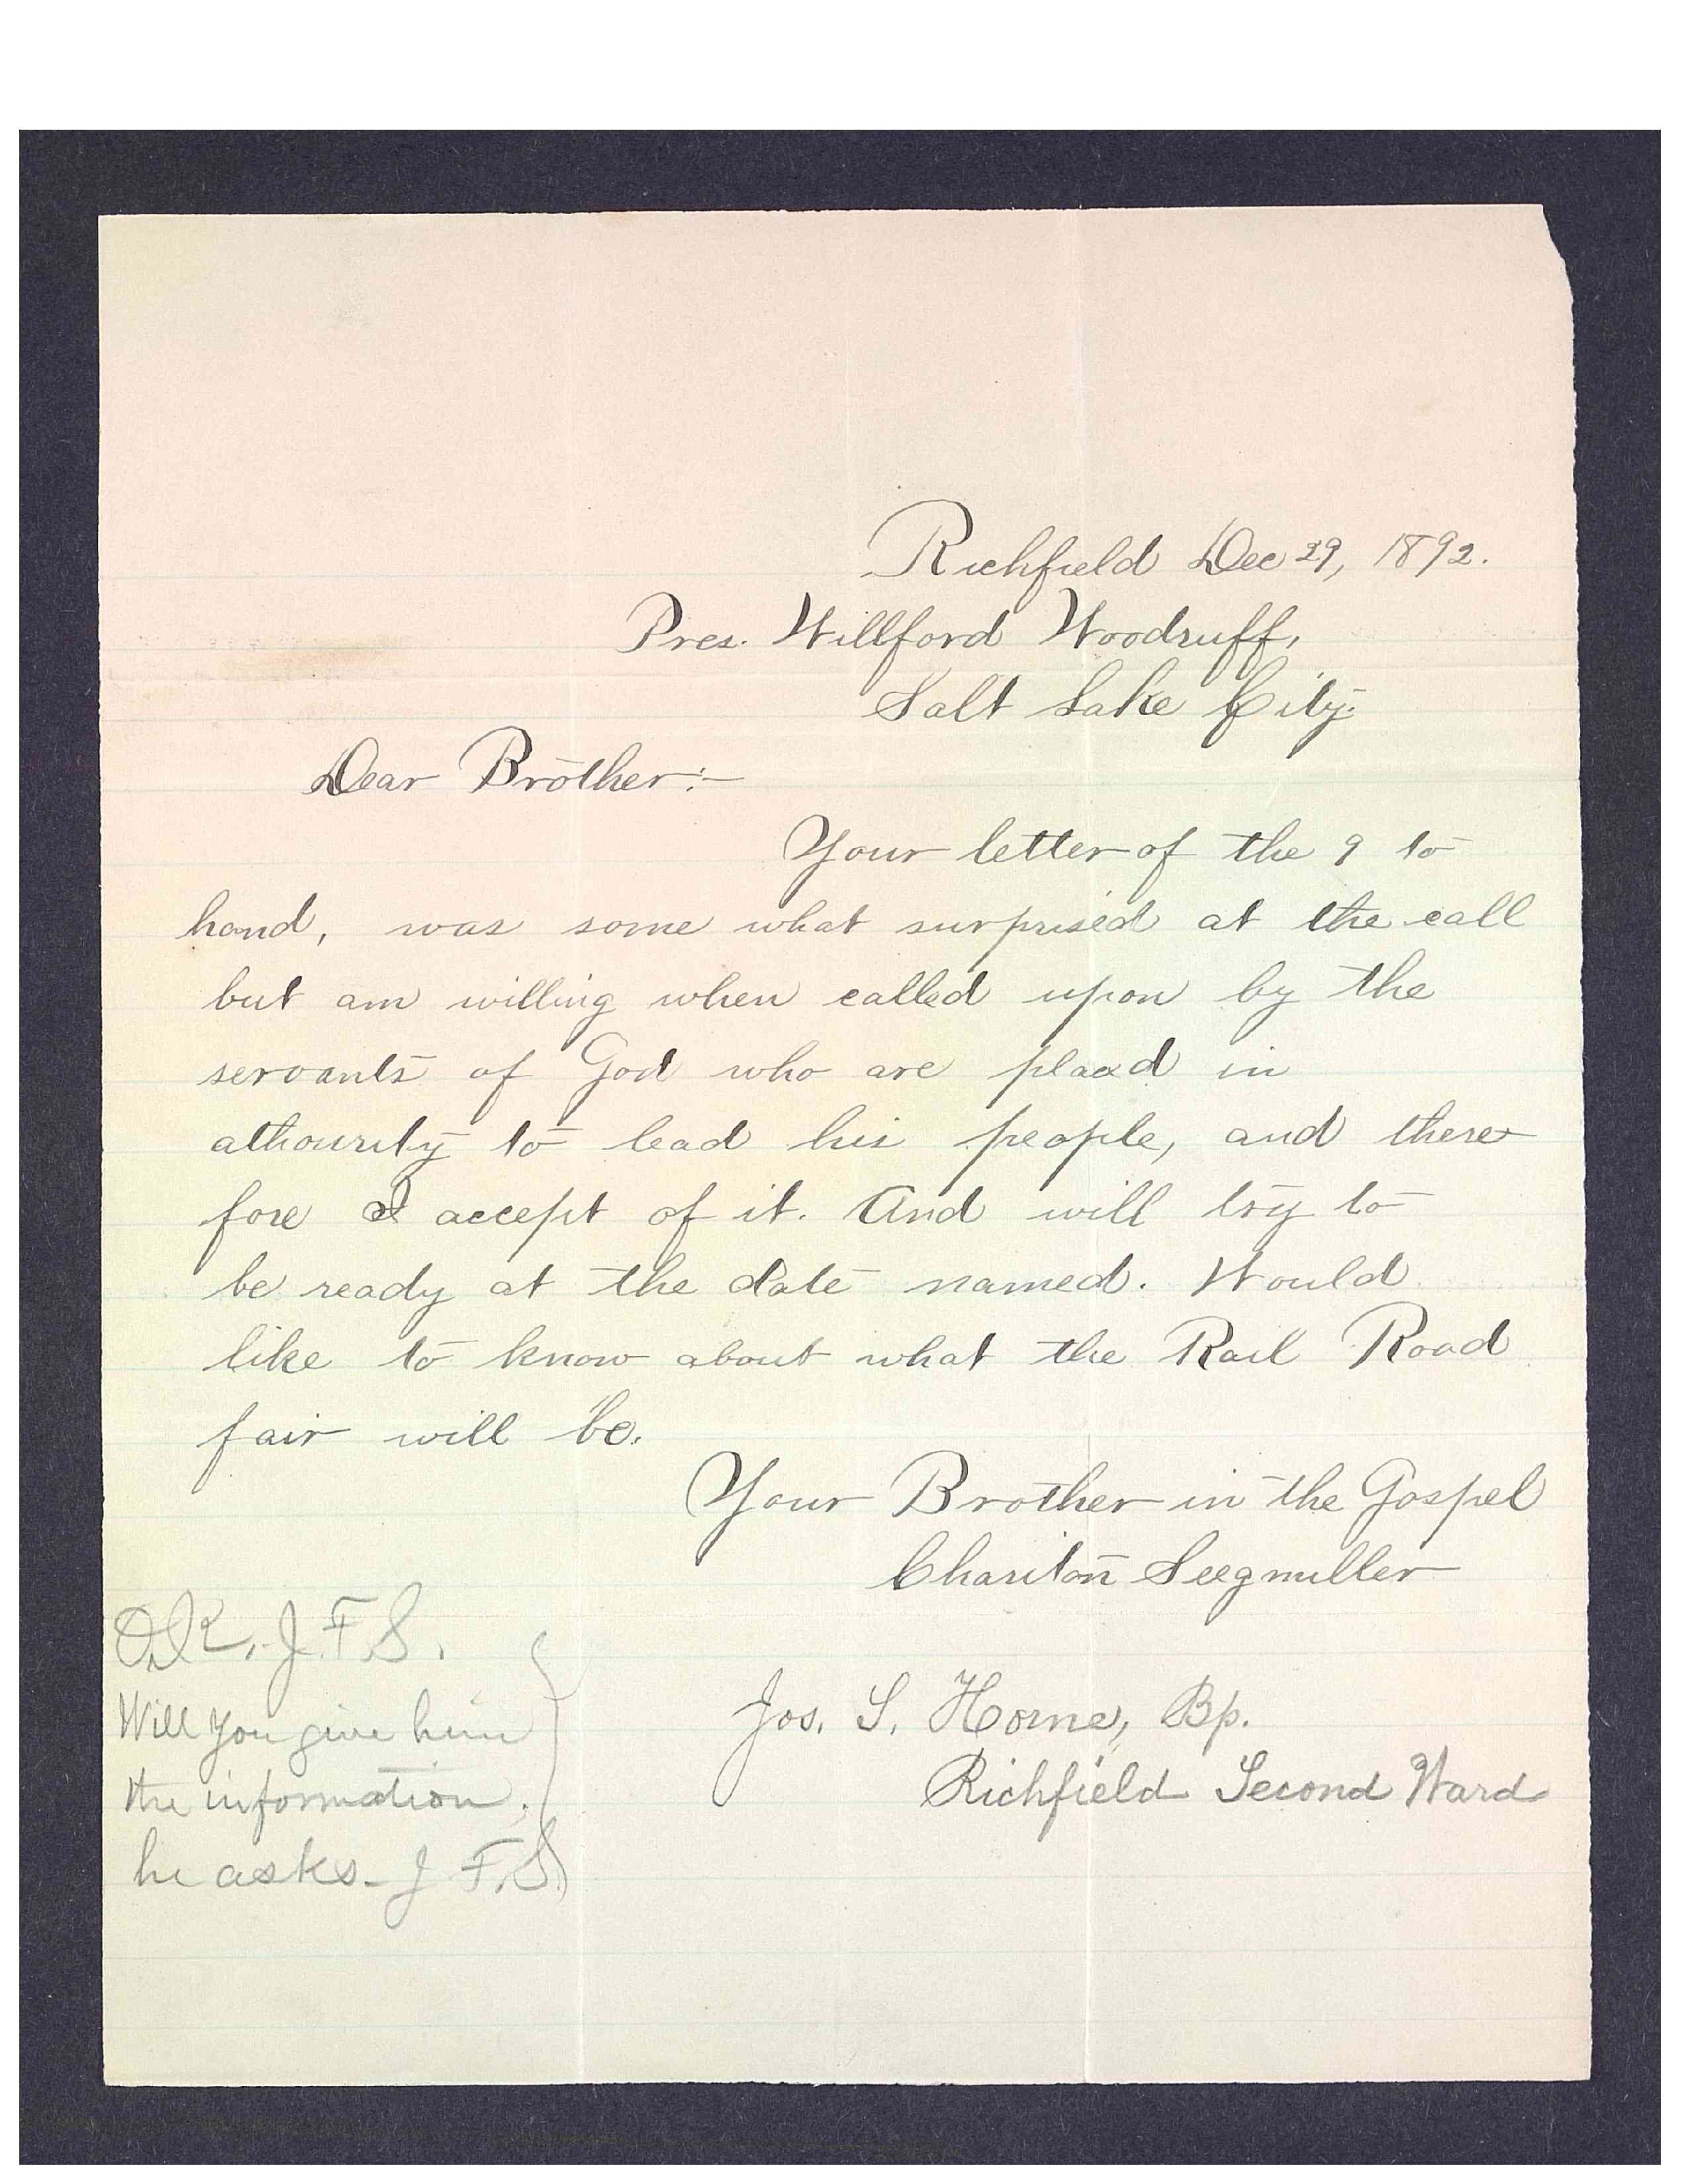 Richfield Dec 29, 1892.
Pres. Willford Woodruff,
Salt Lake City.
Dear Brother:-
Your letter of the 9 to
hand, was some what surprised at the call
but am willing when called upon by the
servants of God who are placed in
athourity to lead his people, and there
fore I accept of it. And will try to
be ready at the date named. Would
like to know about what the Rail Road
fair will be.
Your Brother in the Gospel
Chariton Seegmiller
Jos. S. Horne, Bp.
Richfield Second Ward
O.K. J.F.S.
Will you give him
the information
he asks - J.F.S.